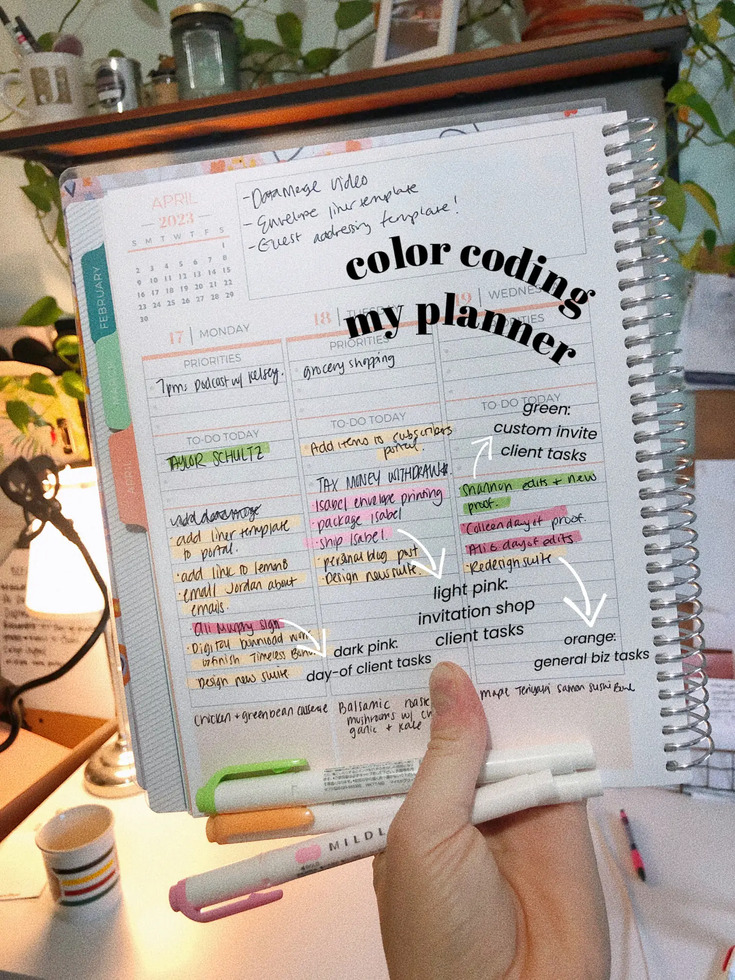 J
APRIL
2023
S M T W T F S
1
2 3 4 5 6 7 8
9 10 11 12 13 14 15
16 17 18 19 20 21 22
23 24 25 26 27 28 29
30
- Data Merge Video
- Envelope liner template
- Guest addressing template!
color coding
my planner
FEBRUARY
MARCH
APRIL
17 MONDAY
PRIORITIES
7pm: Podcast w/ Kelsey.
TO-DO TODAY
TAYLOR SCHULTZ
· add liner template
to portal.
· add link to
· email Jordan about
emails.
Ali Murphy sign
· Digital Download work
finish Timeless
Design new suite
chicken + greenbean casserole
18 TUESDAY
PRIORITIES
grocery shopping
TO-DO TODAY
Add items to subscribers
portal.
TAX MONEY WITHDRAW
· Isabel envelope printing
· package Isabel
· ship Isabel.
· personal blog post
· Design new suite.
Balsamic
mushrooms w/
garlic + kale
19 WEDNES
PRIORITIES
TO-DO TODAY
Shannon edits + new
proof.
Colleen day of proof.
Ali G day of edits
· Redesign suite
maple Teriyaki salmon sushi Bowl
green:
custom invite
client tasks
light pink:
invitation shop
client tasks
dark pink:
day-of client tasks
orange:
general biz tasks
MILDL